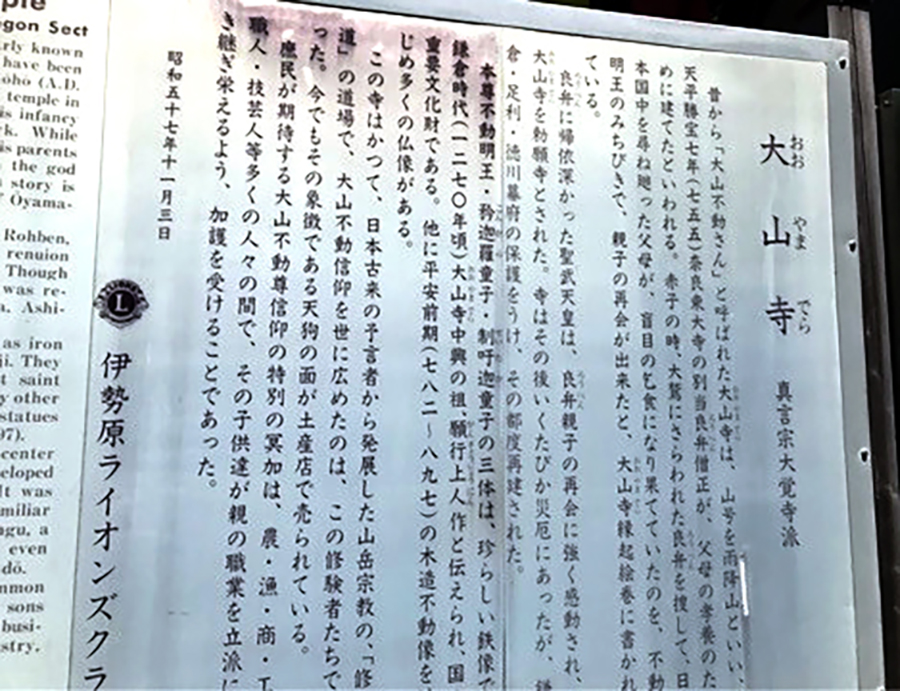 大山寺 真言宗大覚寺派
おおやまでら
昔から「大山不動さん」と呼ばれた大山寺は、山号を雨降山といい、
天平勝宝七年(七五五)奈良東大寺の別当良弁僧正が、父母の孝養のた
めに建てたといわれる。赤子の時、大鷲にさらわれた良弁を捜して、日
本国中を尋ね廻った父母が、盲目の乞食になり果てていたのを、不動
明王のみちびきで、親子の再会が出来たと、大山寺縁起絵巻に書かれ
ている。
良弁に帰依深かった聖武天皇は、良弁親子の再会に強く感動され、
大山寺を勅願寺とされた。寺はその後いくたびか災厄にあったが、鎌
倉・足利・徳川幕府の保護をうけ、その都度再建された。
本尊不動明王・矜迦羅童子・制吒迦童子の三体は、珍らしい鉄像で
鎌倉時代(一二七〇年頃)大山寺中興の祖、願行上人作と伝えられ、国
重要文化財である。他に平安前期(七八二～八九七)の木造不動像を
じめ多くの仏像がある。
この寺はかつて、日本古来の予言者から発展した山岳宗教の、「修
道」の道場で、大山不動信仰を世に広めたのは、この修験者たちで
った。今でもその象徴である天狗の面が土産店で売られている。
庶民が期待する大山不動尊信仰の特別の冥加は、農・漁・商・工
職人・技芸人等多くの人々の間で、その子供達が親の職業を立派に
き継ぎ栄えるよう、加護を受けることであった。
昭和五十七年十一月三日
L 伊勢原ライオンズクラ
ple
gon Sect
rly known
have been
ōhō (A.D.
temple in
is infancy
ck. While
is parents
the god
story is
Ōyama-
Rohben,
renuion
Though
was re-
a, Ashi-
as iron
ji. They
t saint
y other
statues
97).
center
eloped
It was
miliar
ngu, a
even
dō.
mmon
sons
busi-
stry.